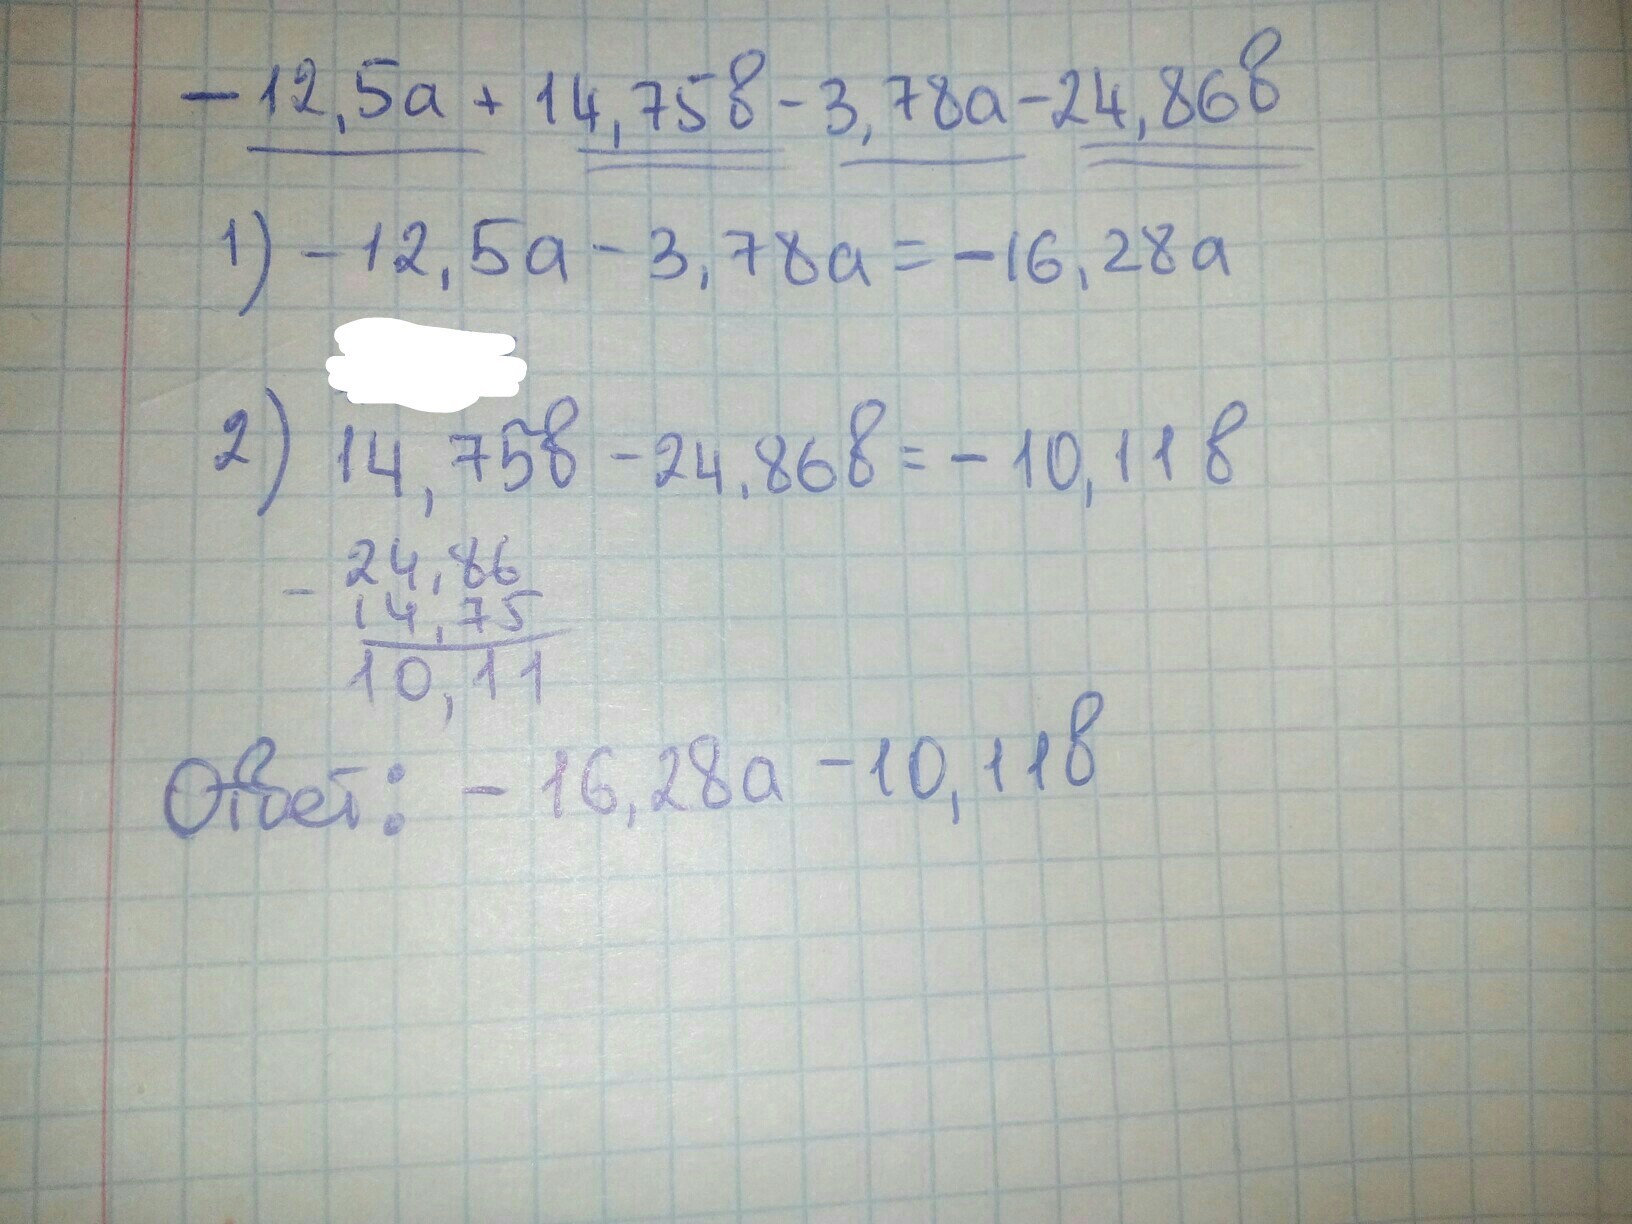 -12,5а + 14,75в - 3,78а - 24,86в
1) -12,5а - 3,78а = -16,28а
2) 14,75в - 24,86в = -10,11в
- 24,86
14,75
10,11
Ответ: -16,28а - 10,11в